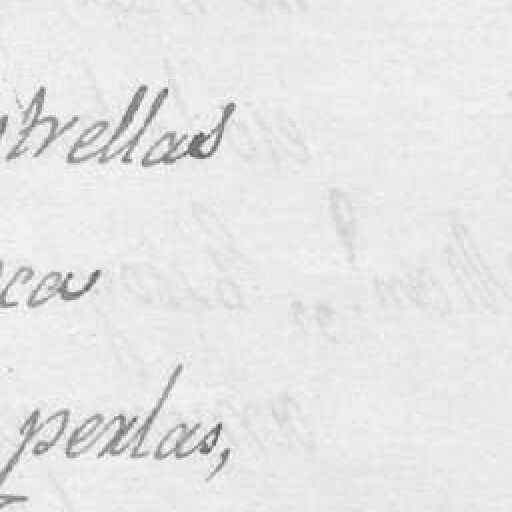 strellas
ca
perlas,